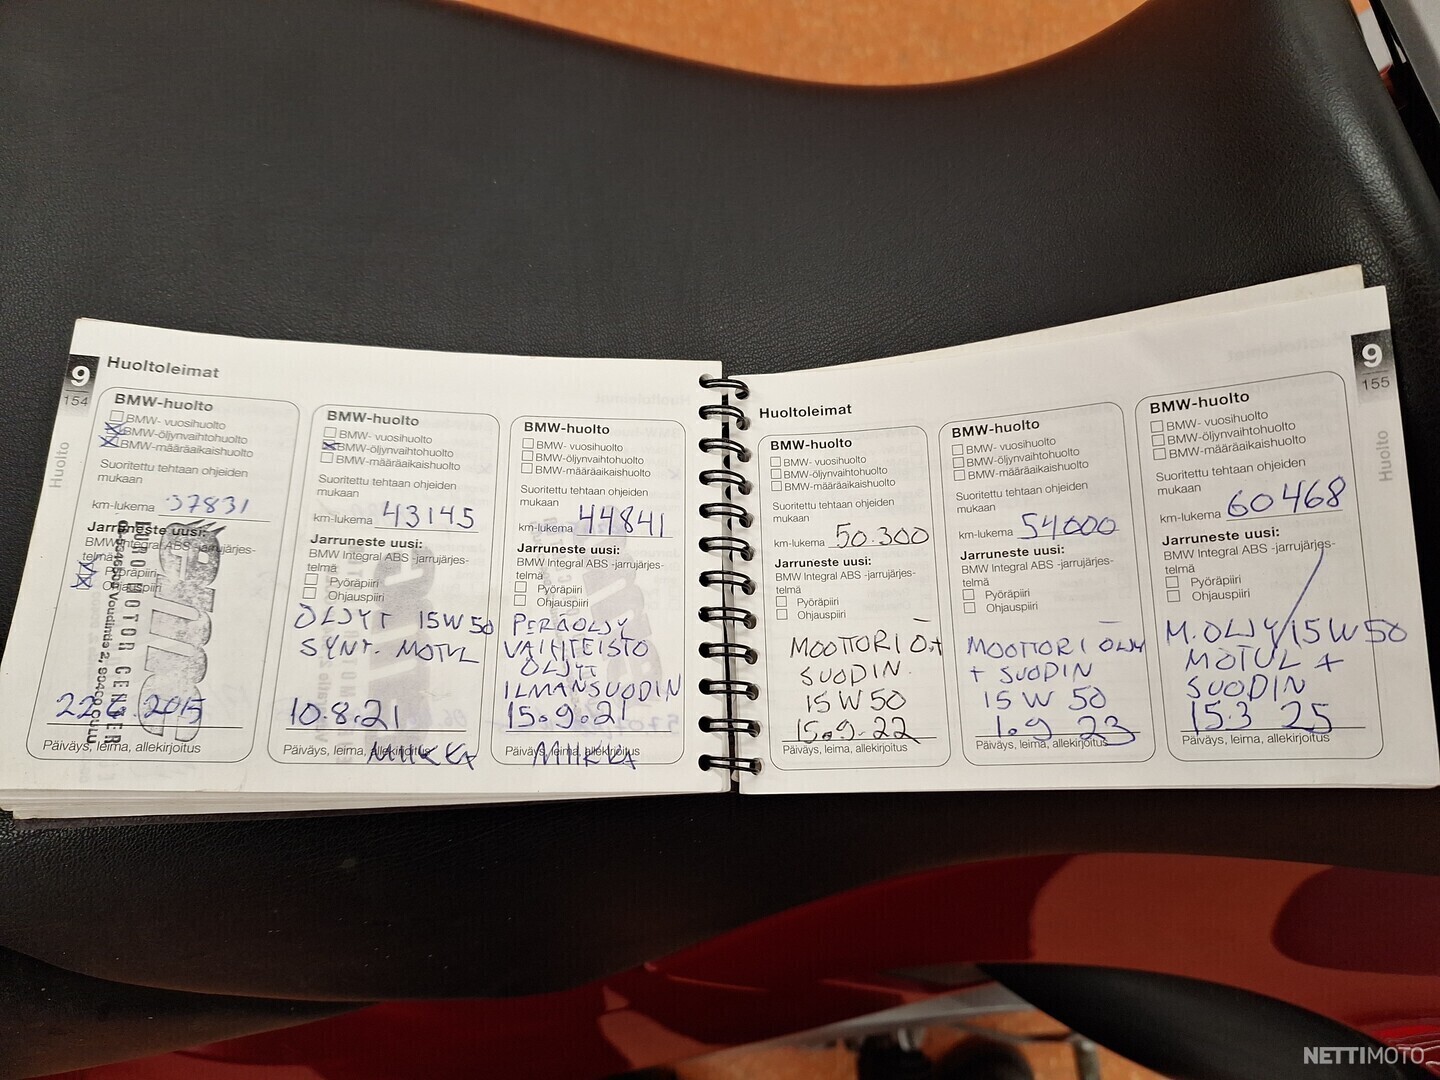 9
154
Huolto
Huoltoleimat
BMW-huolto
BMW- vuosihuolto
BMW-öljynvaihtohuolto
BMW-määräaikaishuolto
Suoritettu tehtaan ohjeiden
mukaan
km-lukema 37831
Jarruneste uusi:
BMW Integral ABS -jarrujärjes-
telmä
Pyöräpiiri
Ohjauspiiri
MOTOR CENTER
Voudintie 2, 90400 OULU
2015
Päiväys, leima, allekirjoitus
BMW-huolto
BMW- vuosihuolto
BMW-öljynvaihtohuolto
BMW-määräaikaishuolto
Suoritettu tehtaan ohjeiden
mukaan
km-lukema 43145
Jarruneste uusi:
BMW Integral ABS -jarrujärjes-
telmä
Pyöräpiiri
Ohjauspiiri
ÖLJYT 15W50
SYNT. MOTUL
10.8.21
Päiväys, leima, allekirjoitus
MIIKKA
BMW-huolto
BMW- vuosihuolto
BMW-öljynvaihtohuolto
BMW-määräaikaishuolto
Suoritettu tehtaan ohjeiden
mukaan
km-lukema 44841
Jarruneste uusi:
BMW Integral ABS -jarrujärjes-
telmä
Pyöräpiiri
Ohjauspiiri
PERÄÖLJY
VAIHTEISTO
ÖLJYT
ILMANSUODIN
15.9.21
Päiväys, leima, allekirjoitus
MIIKKA
9
155
Huolto
Huoltoleimat
BMW-huolto
BMW- vuosihuolto
BMW-öljynvaihtohuolto
BMW-määräaikaishuolto
Suoritettu tehtaan ohjeiden
mukaan
km-lukema 50.300
Jarruneste uusi:
BMW Integral ABS -jarrujärjes-
telmä
Pyöräpiiri
Ohjauspiiri
MOOTTORI Ö.+
SUODIN.
15W50
15.9.22
Päiväys, leima, allekirjoitus
BMW-huolto
BMW- vuosihuolto
BMW-öljynvaihtohuolto
BMW-määräaikaishuolto
Suoritettu tehtaan ohjeiden
mukaan
km-lukema 54000
Jarruneste uusi:
BMW Integral ABS -jarrujärjes-
telmä
Pyöräpiiri
Ohjauspiiri
MOOTTORI ÖLJY
+ SUODIN
15W 50
1.9 23
Päiväys, leima, allekirjoitus
BMW-huolto
BMW- vuosihuolto
BMW-öljynvaihtohuolto
BMW-määräaikaishuolto
Suoritettu tehtaan ohjeiden
mukaan
km-lukema 60468
Jarruneste uusi:
BMW Integral ABS -jarrujärjes-
telmä
Pyöräpiiri
Ohjauspiiri
M.ÖLJY/15W50
MOTUL +
SUODIN
15.3 25
Päiväys, leima, allekirjoitus
NETTIMOTO